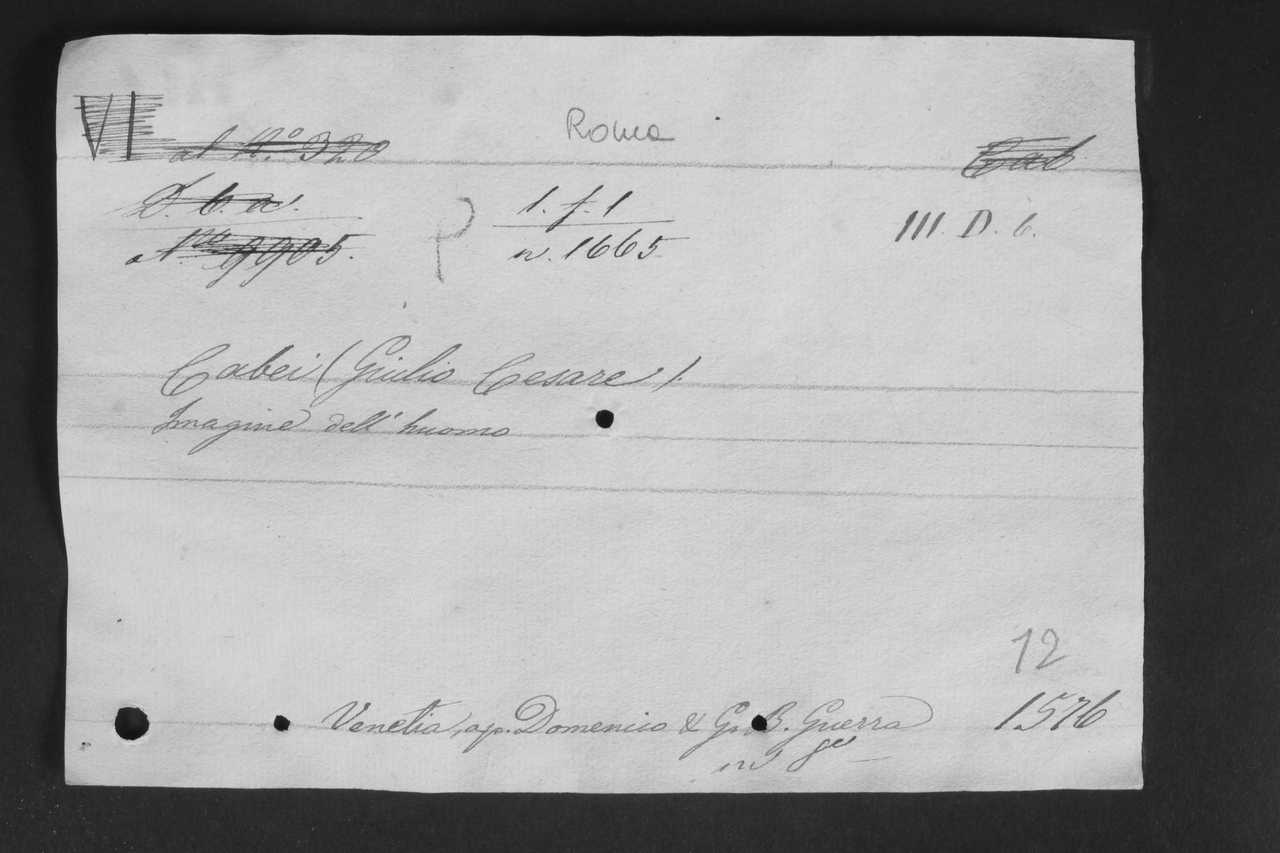 VI
al N.º 320
Roma
Cab
D. b. a.
N.ro 9905.
1. f. 1
n. 1665
III. D. 6.
Cabei (Giulio Cesare).
Imagine dell' huomo
12
Venetia, ap. Domenico & G. B. Guerra 1576
in 8º